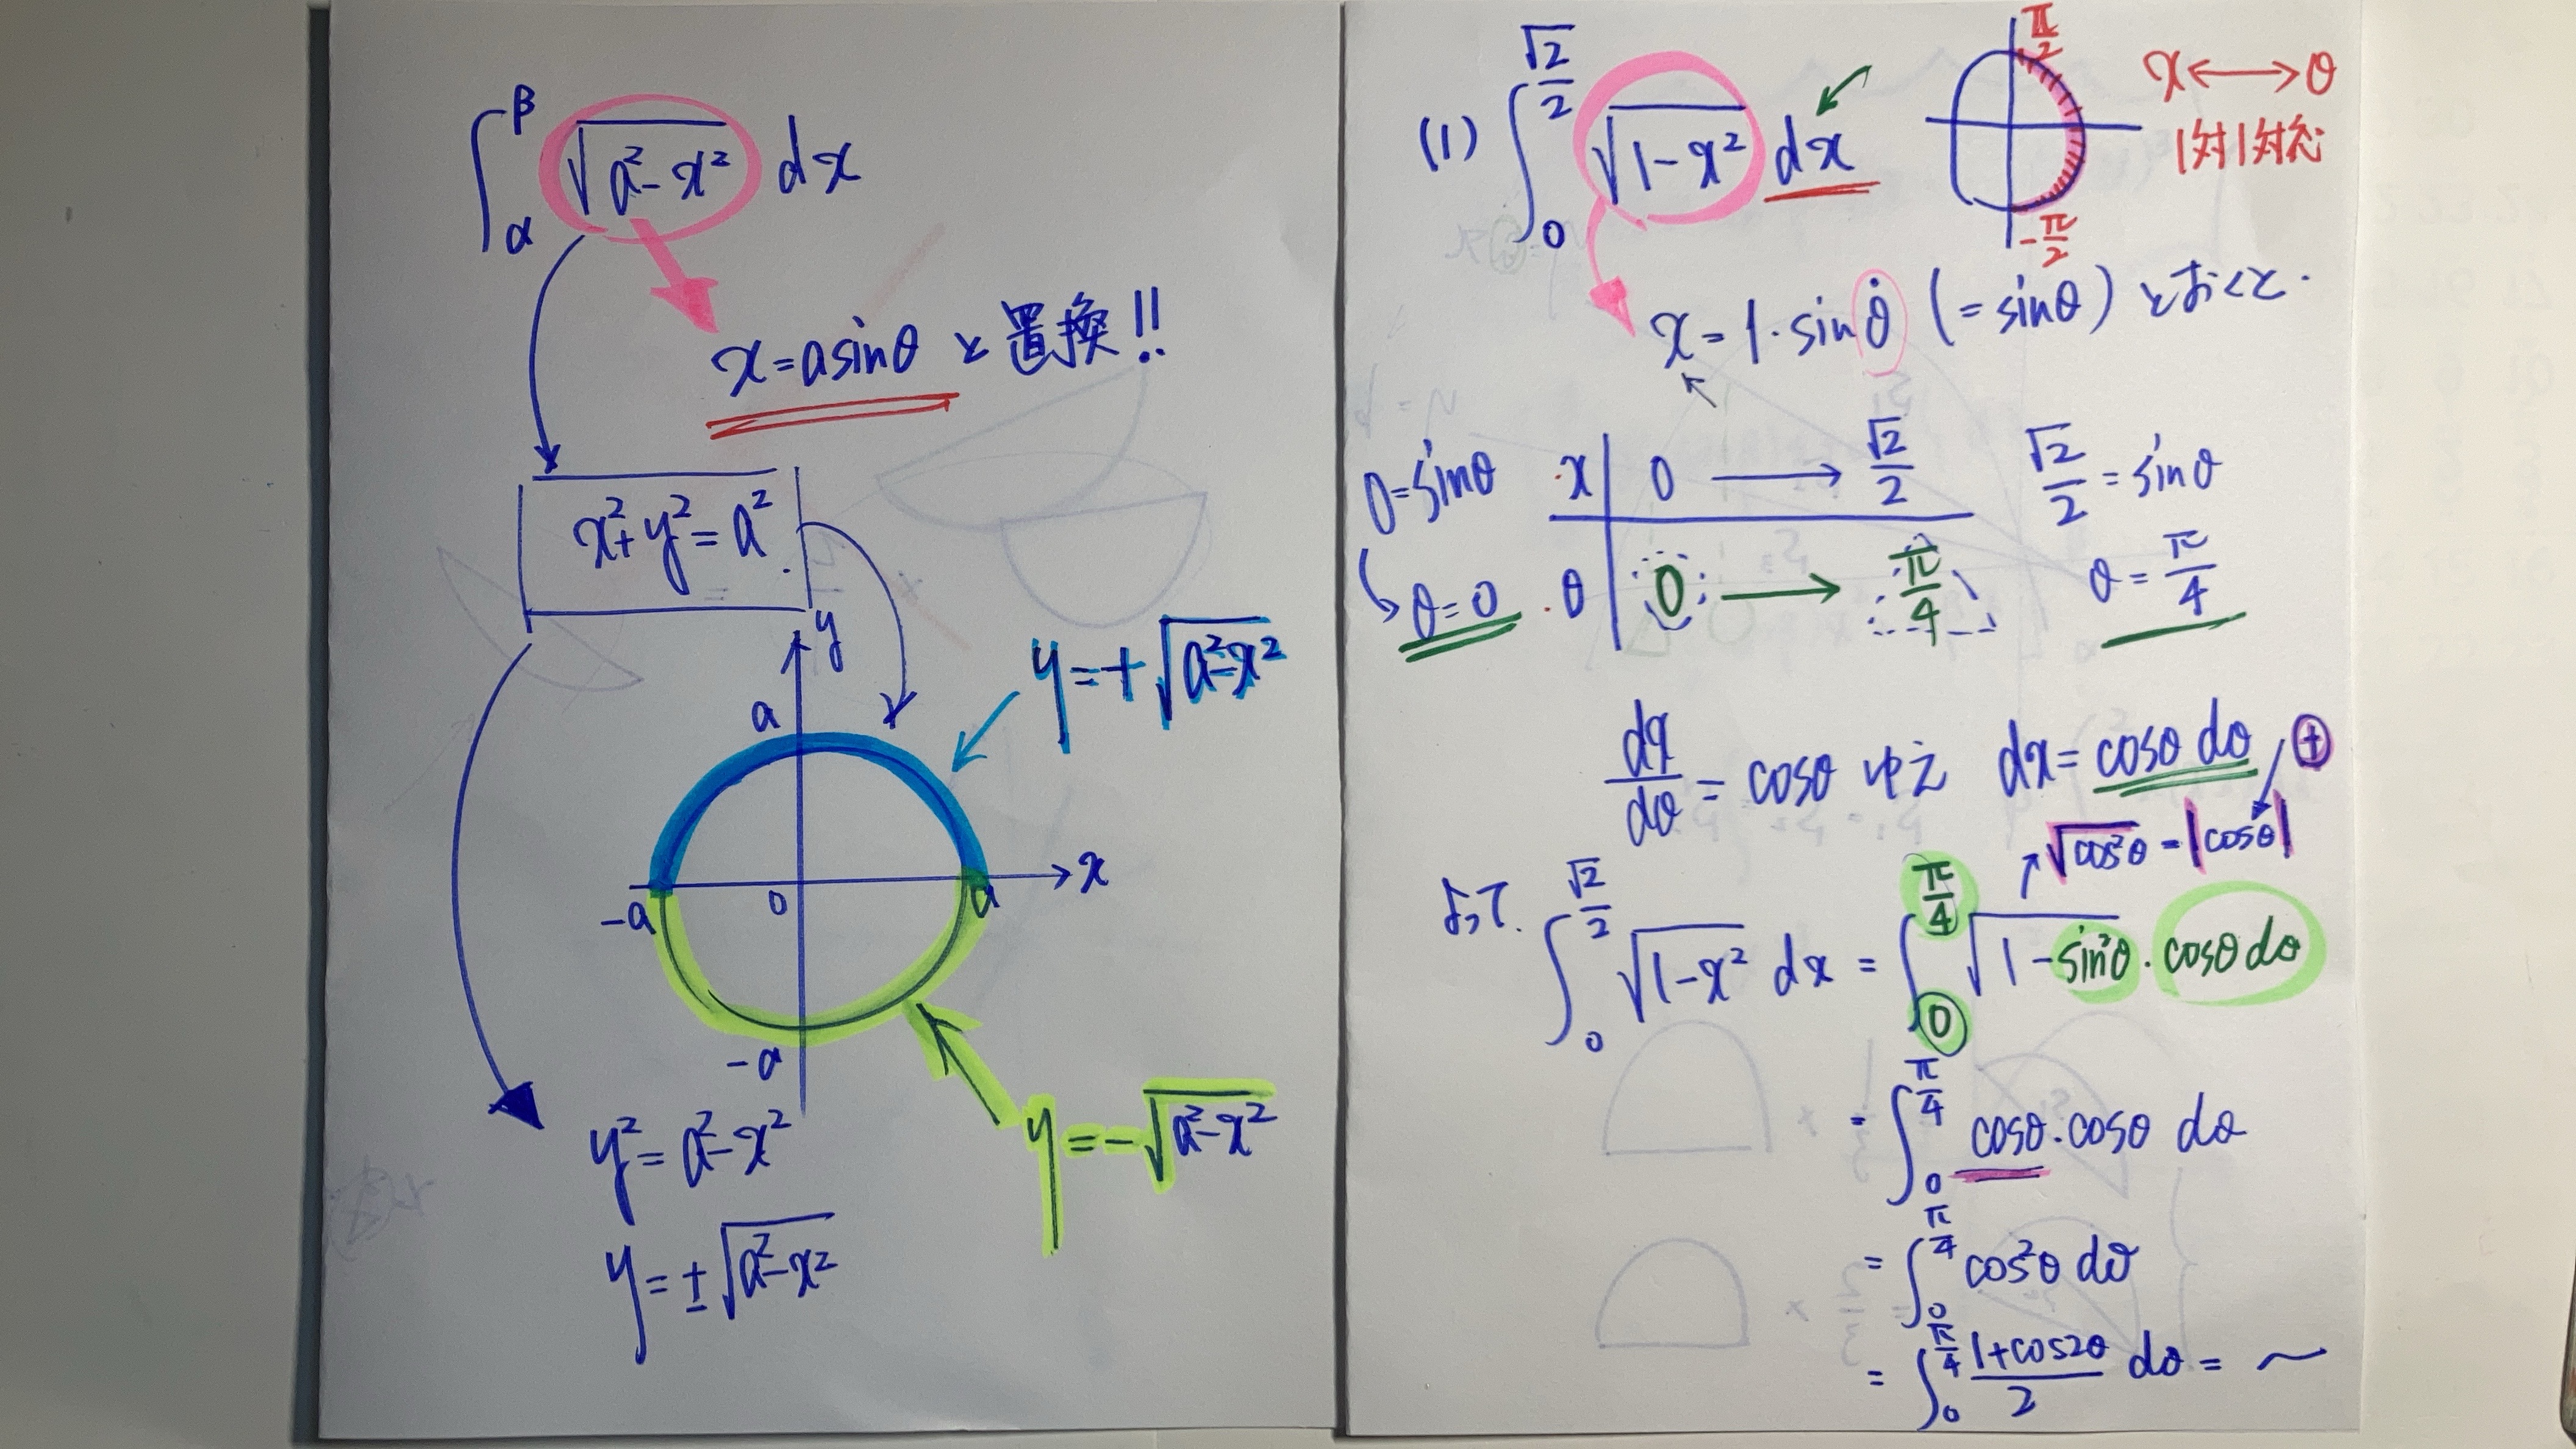 ∫_α^β √(a²-x²) dx
x=asinθ と置換!!
x²+y²=a².
y
a
y=+√(a²-x²)
-a
0
a
x
-a
y=-√(a²-x²)
y²=a²-x²
y=±√(a²-x²)
(1) ∫_0^{√2/2} √(1-x²) dx
π/2
-π/2
x⟷θ
1対1対応
x=1·sinθ (=sinθ) とおくと.
0=sinθ
θ=0
x | 0 → √2/2
θ | 0 → π/4
√2/2=sinθ
θ=π/4
dx/dθ=cosθ ゆえに dx=cosθ dθ
⊕
√cos²θ=|cosθ|
よって. ∫_0^{√2/2} √(1-x²) dx = ∫_0^{π/4} √(1-sin²θ)·cosθ dθ
= ∫_0^{π/4} cosθ·cosθ dθ
= ∫_0^{π/4} cos²θ dθ
= ∫_0^{π/4} (1+cos2θ)/2 dθ = ~